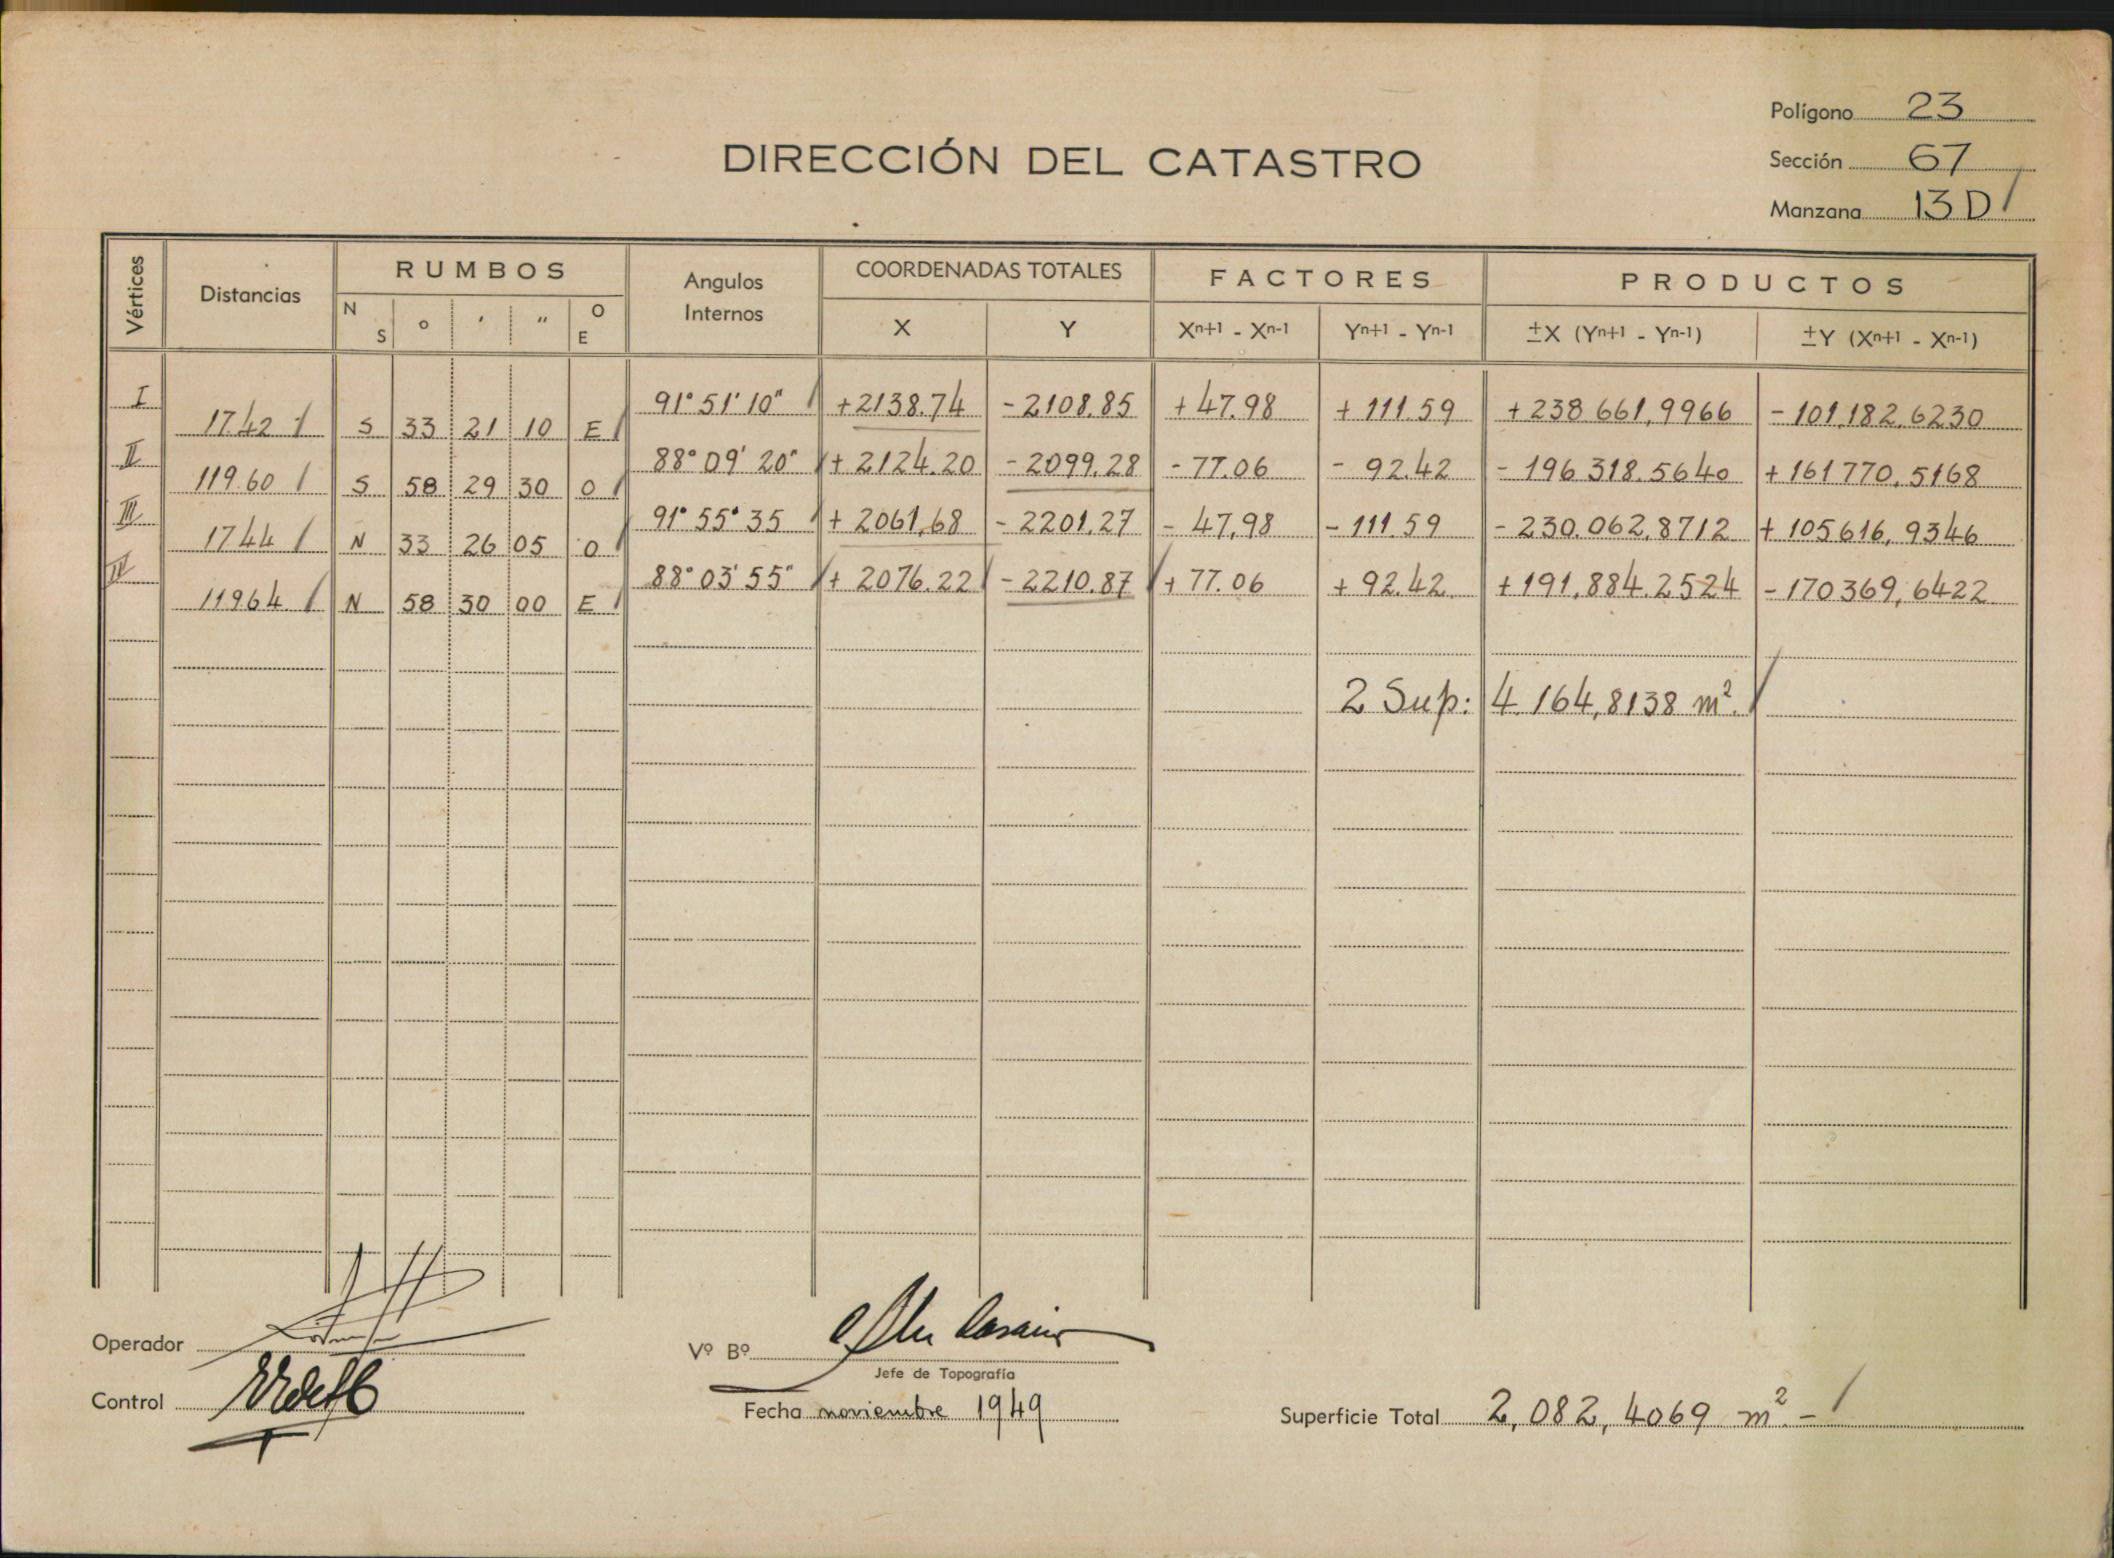 Polígono 23
DIRECCIÓN DEL CATASTRO
Sección 67
Manzana 13 D
Vértices Distancias RUMBOS Angulos Internos COORDENADAS TOTALES FACTORES PRODUCTOS
N S ° ' " O E X Y Xⁿ⁺¹ - Xⁿ⁻¹ Yⁿ⁺¹ - Yⁿ⁻¹ ±X (Yⁿ⁺¹ - Yⁿ⁻¹) ±Y (Xⁿ⁺¹ - Xⁿ⁻¹)
I 91° 51' 10" +2138.74 -2108.85 +47.98 +111.59 +238 661,9966 -101,182.6230
17.42 S 33 21 10 E
II 88° 09' 20" +2124.20 -2099.28 -77.06 -92.42 -196 318.5640 +161770,5168
119.60 S 58 29 30 O
III 91° 55' 35 +2061,68 -2201.27 -47,98 -111.59 -230.062,8712 +105616,9346
17.44 N 33 26 05 O
IV 88° 03' 55" +2076.22 -2210.87 +77.06 +92.42 +191,884.2524 -170369,6422
119.64 N 58 30 00 E
2 Sup: 4.164,8138 m².
Operador
Vº Bº
Jefe de Topografía
Control
Fecha noviembre 1949
Superficie Total 2,082,4069 m².-